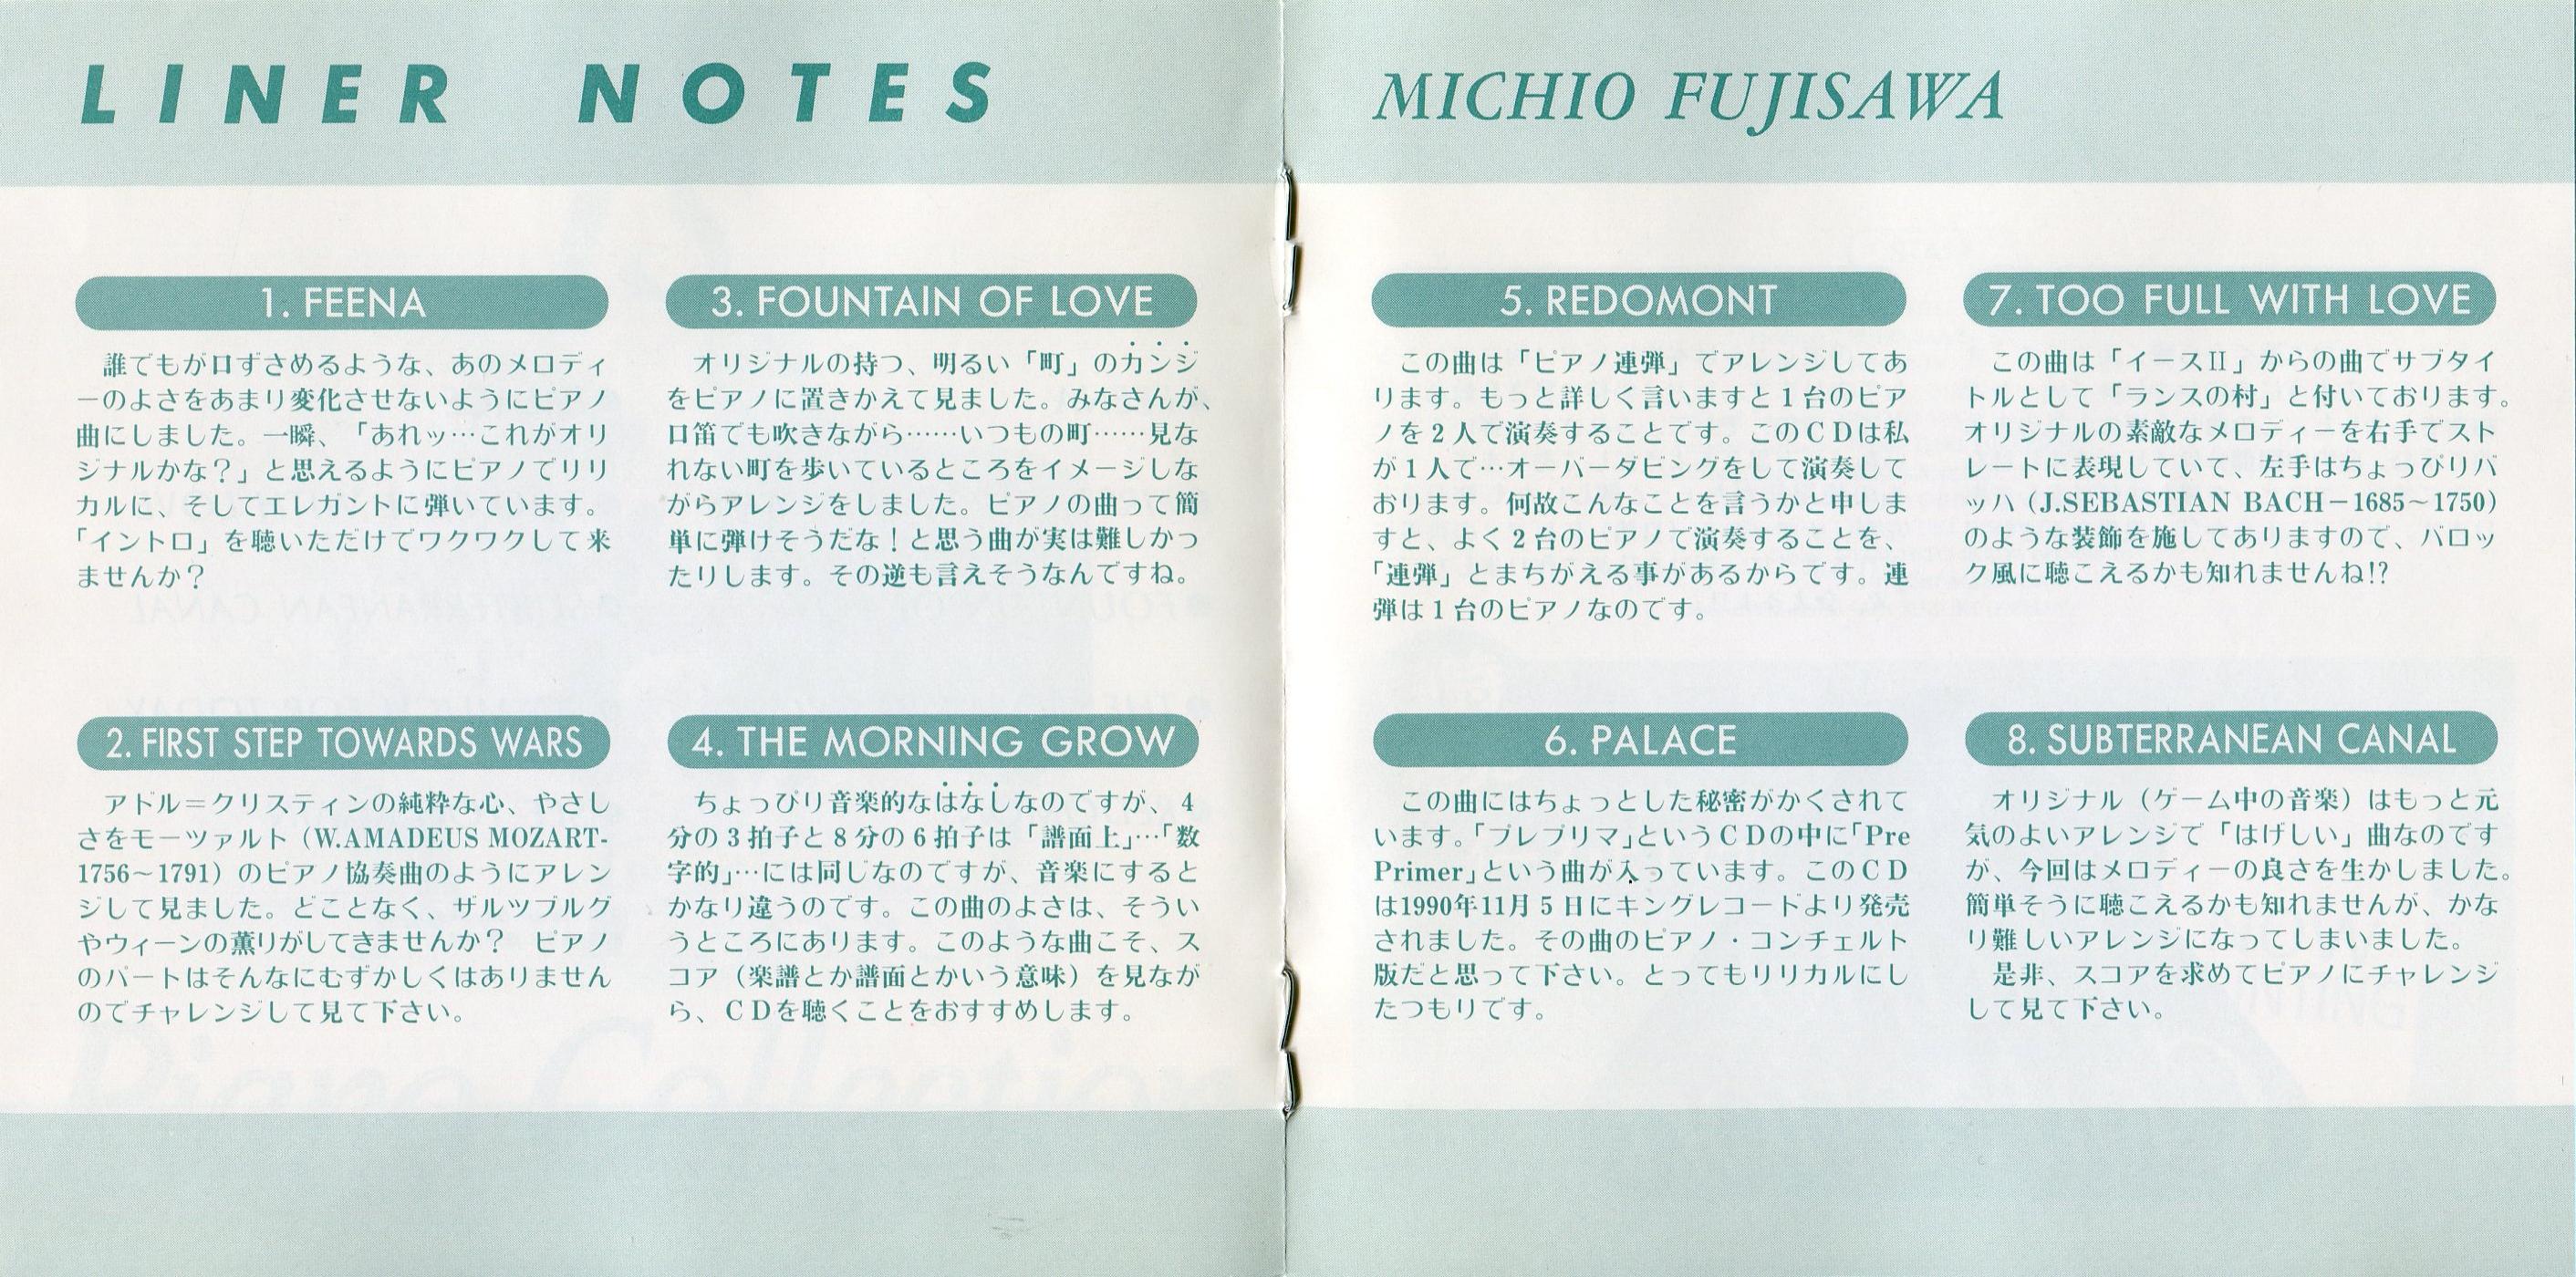 LINER NOTES
1. FEENA
誰でもが口ずさめるような、あのメロディ
ーのよさをあまり変化させないようにピアノ
曲にしました。一瞬、「あれッ…これがオリ
ジナルかな?」と思えるようにピアノでリリ
カルに、そしてエレガントに弾いています。
「イントロ」を聴いただけでワクワクして来
ませんか?
2. FIRST STEP TOWARDS WARS
アドル=クリスティンの純粋な心、やさし
さをモーツァルト(W.AMADEUS MOZART-
1756~1791)のピアノ協奏曲のようにアレン
ジして見ました。どことなく、ザルツブルグ
やウィーンの薫りがしてきませんか? ピアノ
のパートはそんなにむずかしくはありません
のでチャレンジして見て下さい。
3. FOUNTAIN OF LOVE
オリジナルの持つ、明るい「町」のカンジ
をピアノに置きかえて見ました。みなさんが、
口笛でも吹きながら……いつもの町……見な
れない町を歩いているところをイメージしな
がらアレンジをしました。ピアノの曲って簡
単に弾けそうだな!と思う曲が実は難しかっ
たりします。その逆も言えそうなんですね。
4. THE MORNING GROW
ちょっぴり音楽的なはなしなのですが、4
分の3拍子と8分の6拍子は「譜面上」…「数
字的」…には同じなのですが、音楽にすると
かなり違うのです。この曲のよさは、そうい
うところにあります。このような曲こそ、ス
コア(楽譜とか譜面とかいう意味)を見なが
ら、CDを聴くことをおすすめします。
MICHIO FUJISAWA
5. REDOMONT
この曲は「ピアノ連弾」でアレンジしてあ
ります。もっと詳しく言いますと1台のピア
ノを2人で演奏することです。このCDは私
が1人で…オーバーダビングをして演奏して
おります。何故こんなことを言うかと申しま
すと、よく2台のピアノで演奏することを、
「連弾」とまちがえる事があるからです。連
弾は1台のピアノなのです。
6. PALACE
この曲にはちょっとした秘密がかくされて
います。「プレプリマ」というCDの中に「Pre
Primer」という曲が入っています。このCD
は1990年11月5日にキングレコードより発売
されました。その曲のピアノ・コンチェルト
版だと思って下さい。とってもリリカルにし
たつもりです。
7. TOO FULL WITH LOVE
この曲は「イースII」からの曲でサブタイ
トルとして「ランスの村」と付いております。
オリジナルの素敵なメロディーを右手でスト
レートに表現していて、左手はちょっぴりバ
ッハ(J.SEBASTIAN BACH-1685~1750)
のような装飾を施してありますので、バロッ
ク風に聴こえるかも知れませんね!?
8. SUBTERRANEAN CANAL
オリジナル(ゲーム中の音楽)はもっと元
気のよいアレンジで「はげしい」曲なのです
が、今回はメロディーの良さを生かしました。
簡単そうに聴こえるかも知れませんが、かな
り難しいアレンジになってしまいました。
是非、スコアを求めてピアノにチャレンジ
して見て下さい。